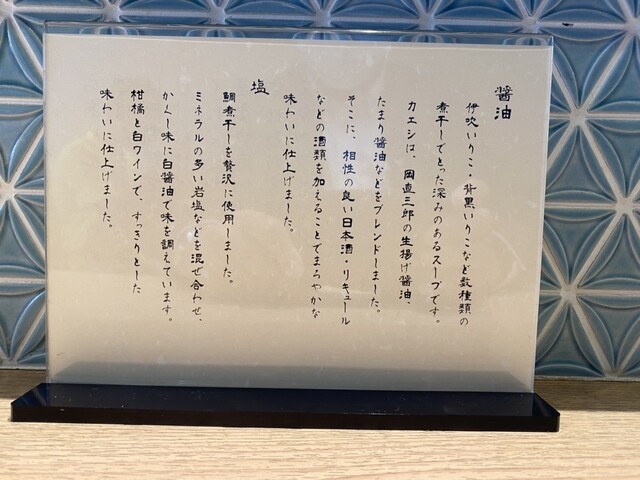 醤油
伊吹いりこ・背黒いりこなど数種類の
煮干しでとった深みのあるスープです。
カエシは、岡直三郎の生揚げ醤油、
たまり醤油などをブレンドしました。
そこに、相性の良い日本酒・リキュール
などの酒類を加えることでまろやかな
味わいに仕上げました。
塩
鯛煮干しを贅沢に使用しました。
ミネラルの多い岩塩などを混ぜ合わせ、
かくし味に白醤油で味を調えています。
柑橘と白ワインで、すっきりとした
味わいに仕上げました。